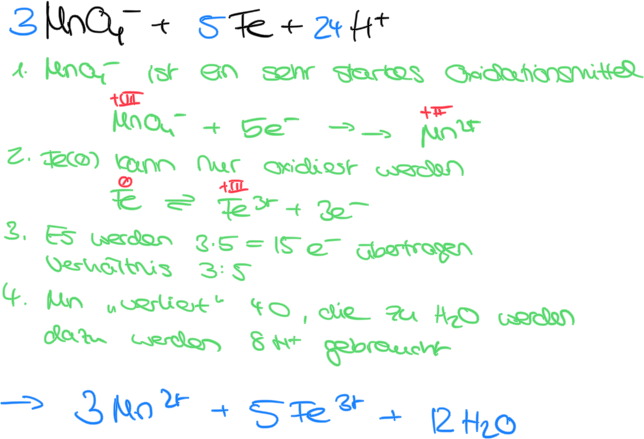 3 MnO₄⁻ + 5 Fe + 24 H⁺
1. MnO₄⁻ ist ein sehr starkes Oxidationsmittel
+VII +II
MnO₄⁻ + 5e⁻ →→ Mn²⁺
2. Fe(0) kann nur oxidiert werden
0 +III
Fe ⇌ Fe³⁺ + 3e⁻
3. Es werden 3·5 = 15 e⁻ übertragen
Verhältnis 3:5
4. Mn „verliert“ 4 O, die zu H₂O werden
dazu werden 8 H⁺ gebraucht
→ 3 Mn²⁺ + 5 Fe³⁺ + 12 H₂O